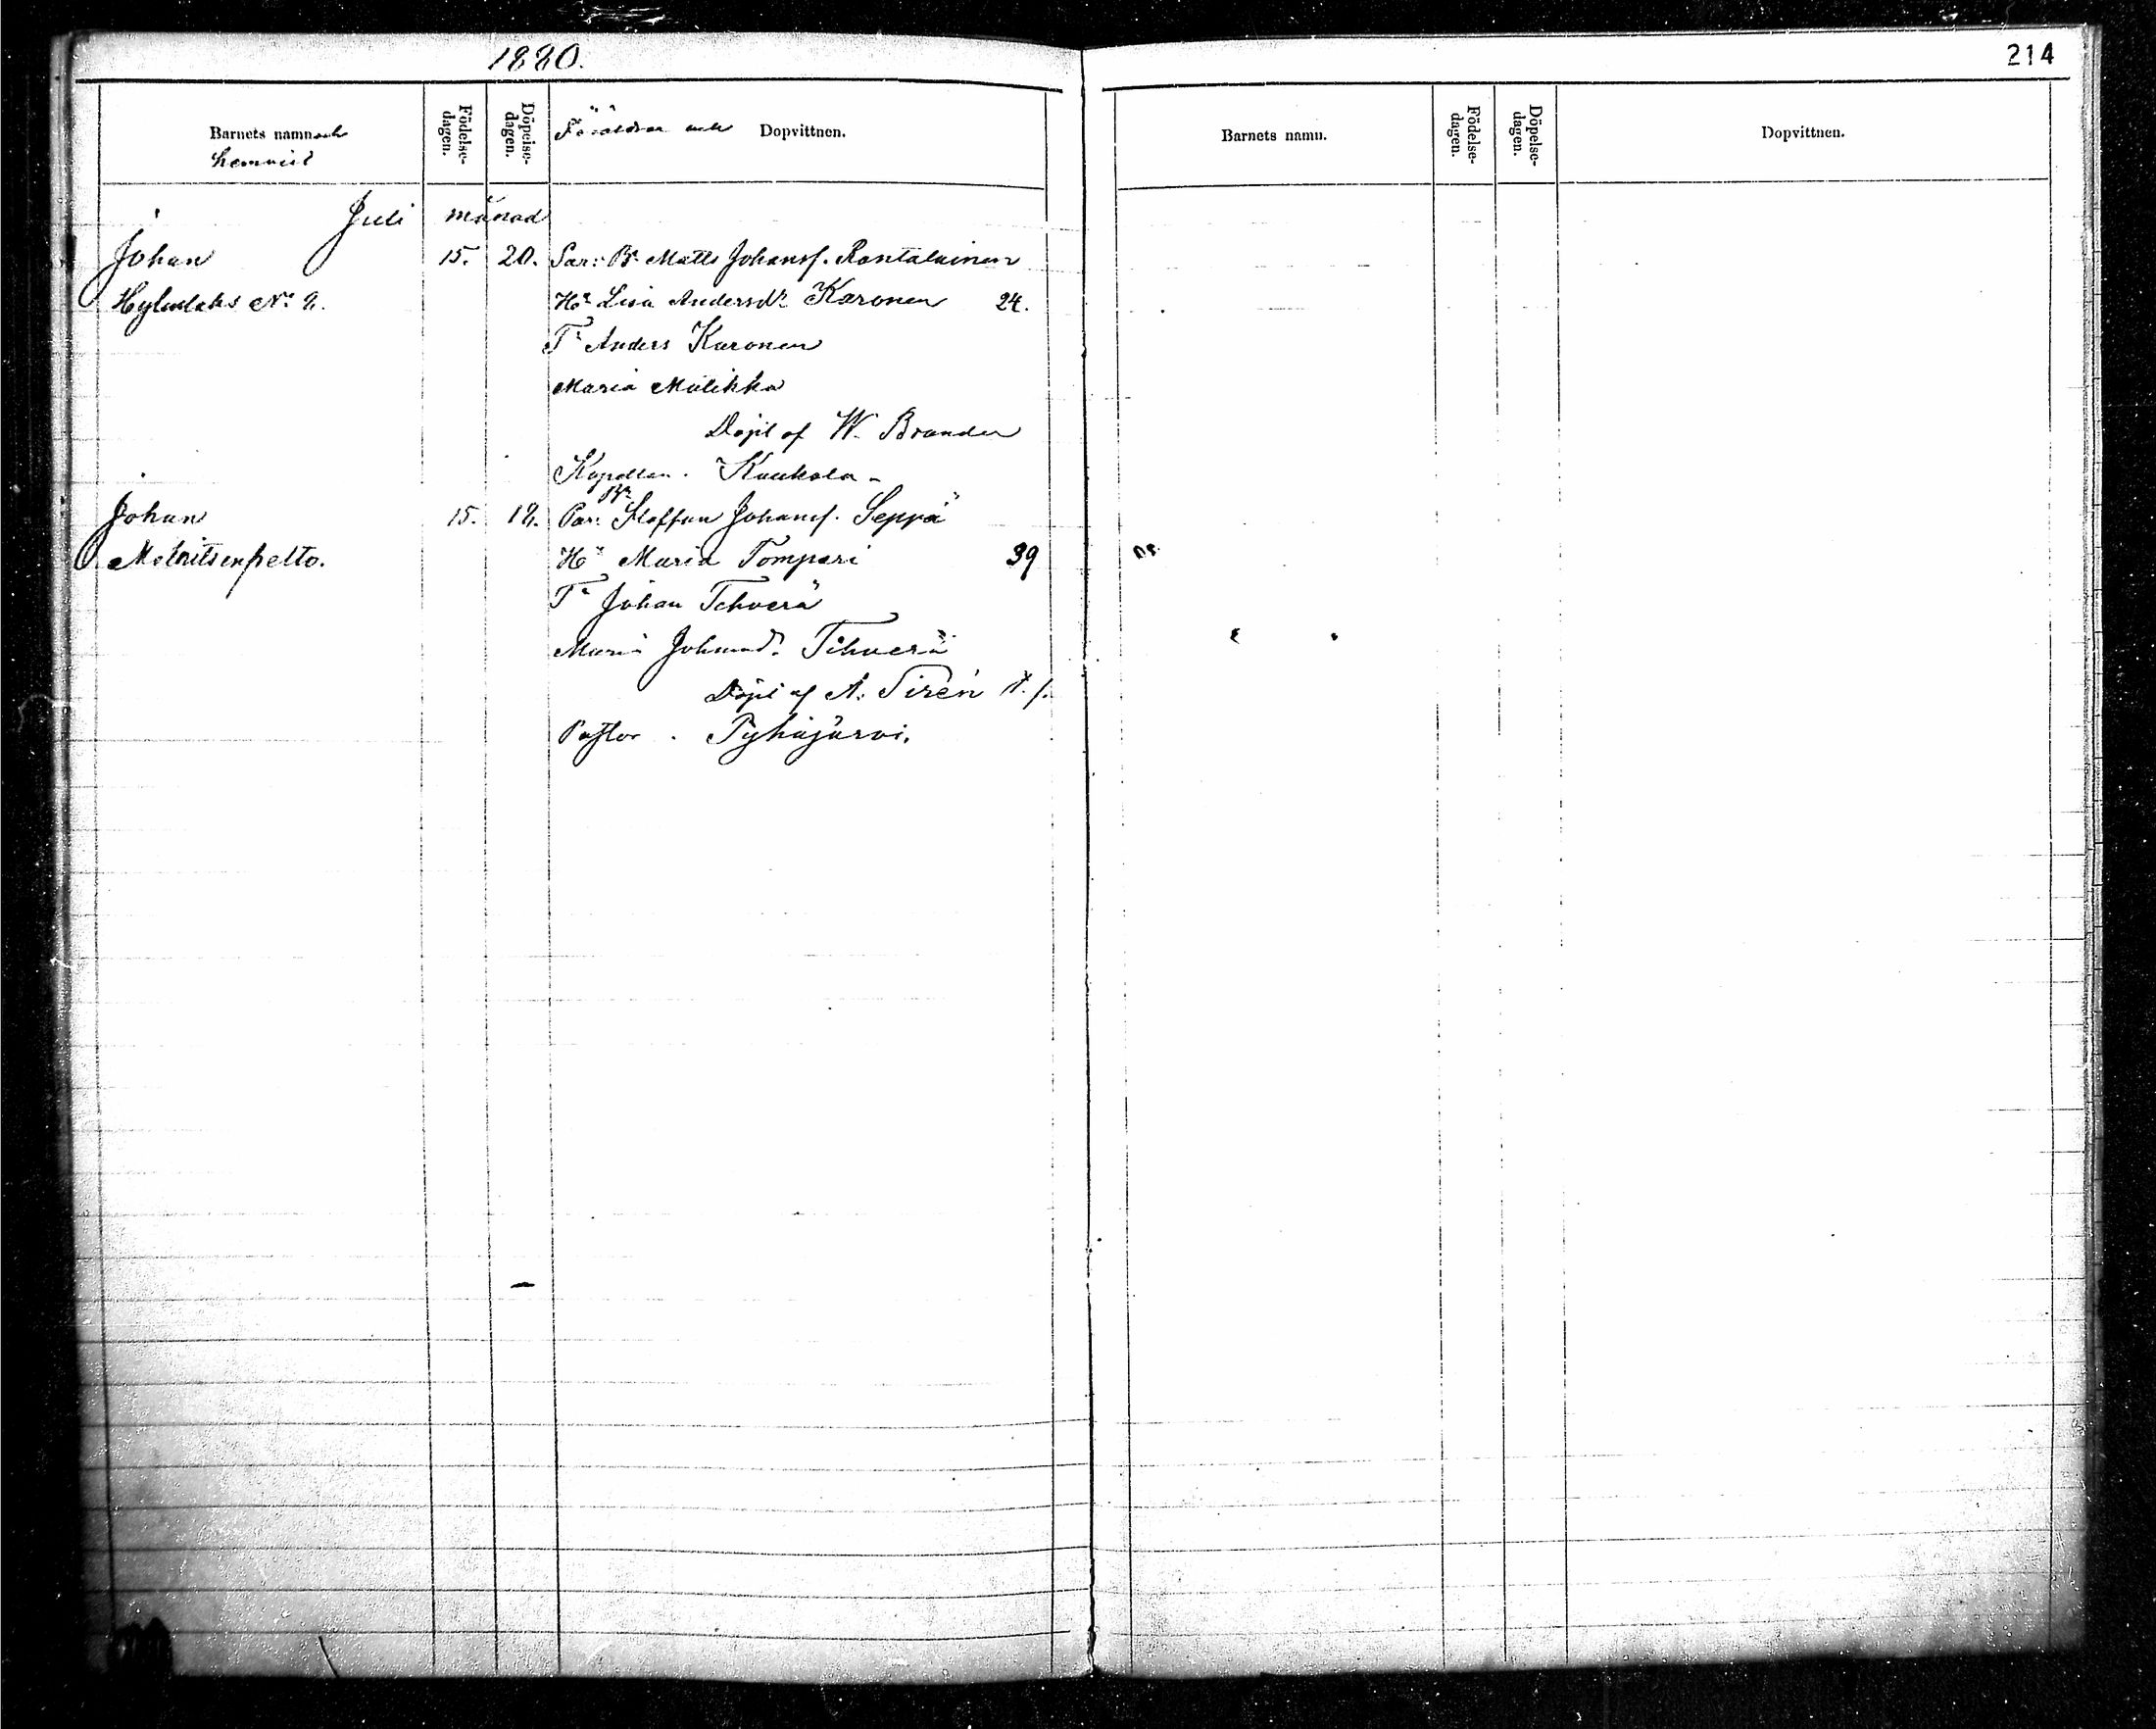 1880.
214
Barnets namn och
hemvist
Födelse-
dagen.
Döpelse-
dagen.
Föräldrar och Dopvittnen.
Barnets namn.
Födelse-
dagen.
Döpelse-
dagen.
Dopvittnen.
Juli månad
Johan 15. 20. Par: Bn Matts Johansf. Rantalainen
N:o 2. Hu Lisa Andersdr Karonen 24.
Tn Anders Karonen
Maria Mulikka
Döpt af W. Brander
Kapellan. Kaukola.
Johan 15. 18. Par: Bn Staffan Johansf. Seppä
Metsitsenpelto. Hu Maria Tompuri 39
Tn Johan Tehverä
Maria Johansd. Tihverä
Döpt af A. Sirén
Pastor. Pyhäjärvi.